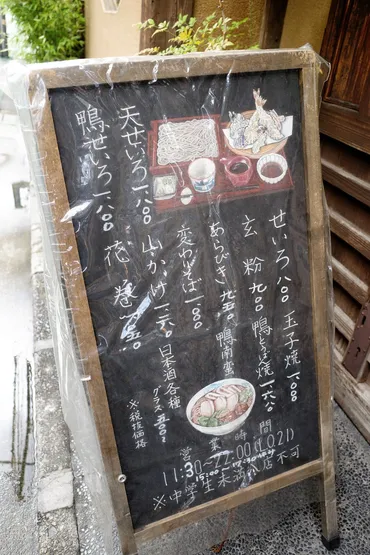 天せいろ 一八〇〇
鴨せいろ 一八〇〇
せいろ 八〇〇
玄粉 九〇〇
あらびき 九五〇
変わりそば
山かけ
花巻
玉子焼
鴨焼 一六〇〇
鴨南蛮
日本酒各種
グラス 五〇〇〜
※税抜価格
営業時間
11:30〜22:00(L.O.21)
15:00
※中学生未満入店不可